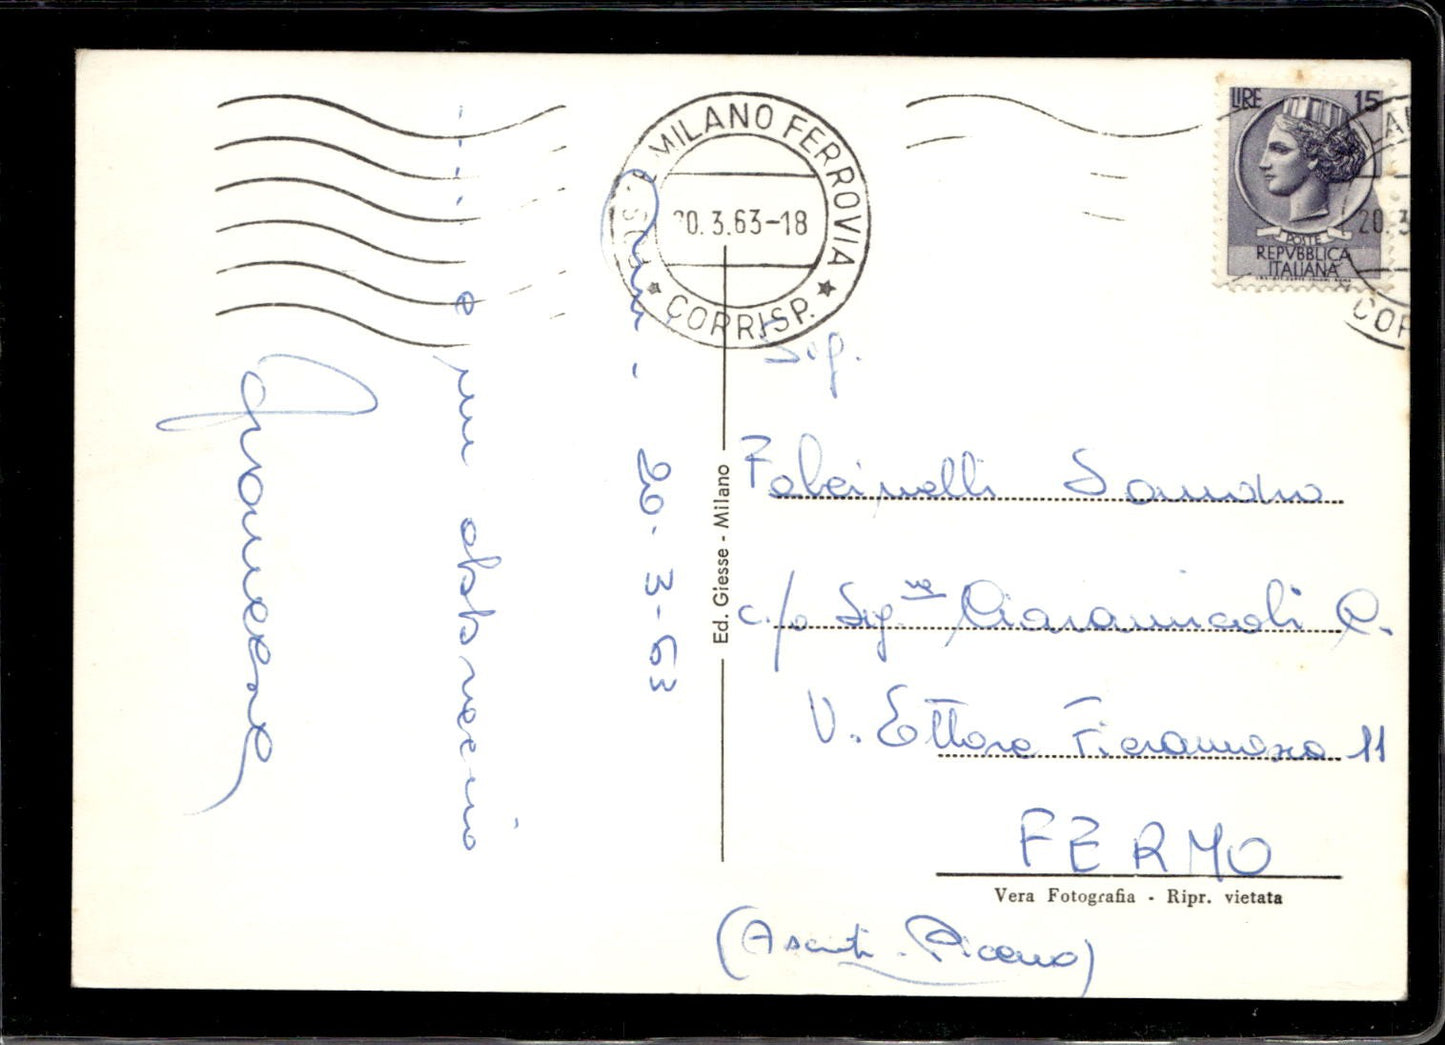 MILANO FERROVIA
20.3.63-18
CORRISP.
LIRE 15
POSTE
REPVBBLICA
ITALIANA
20.3
COR
20-3-63
. . . . e un abbraccio
Sig.
Falcinelli Sandro
c/o Sig.na Ciarannicoli C.
V. Ettore Fieramosca 11
FERMO
(Ascoli-Piceno)
Ed. Giesse - Milano
Vera Fotografia - Ripr. vietata